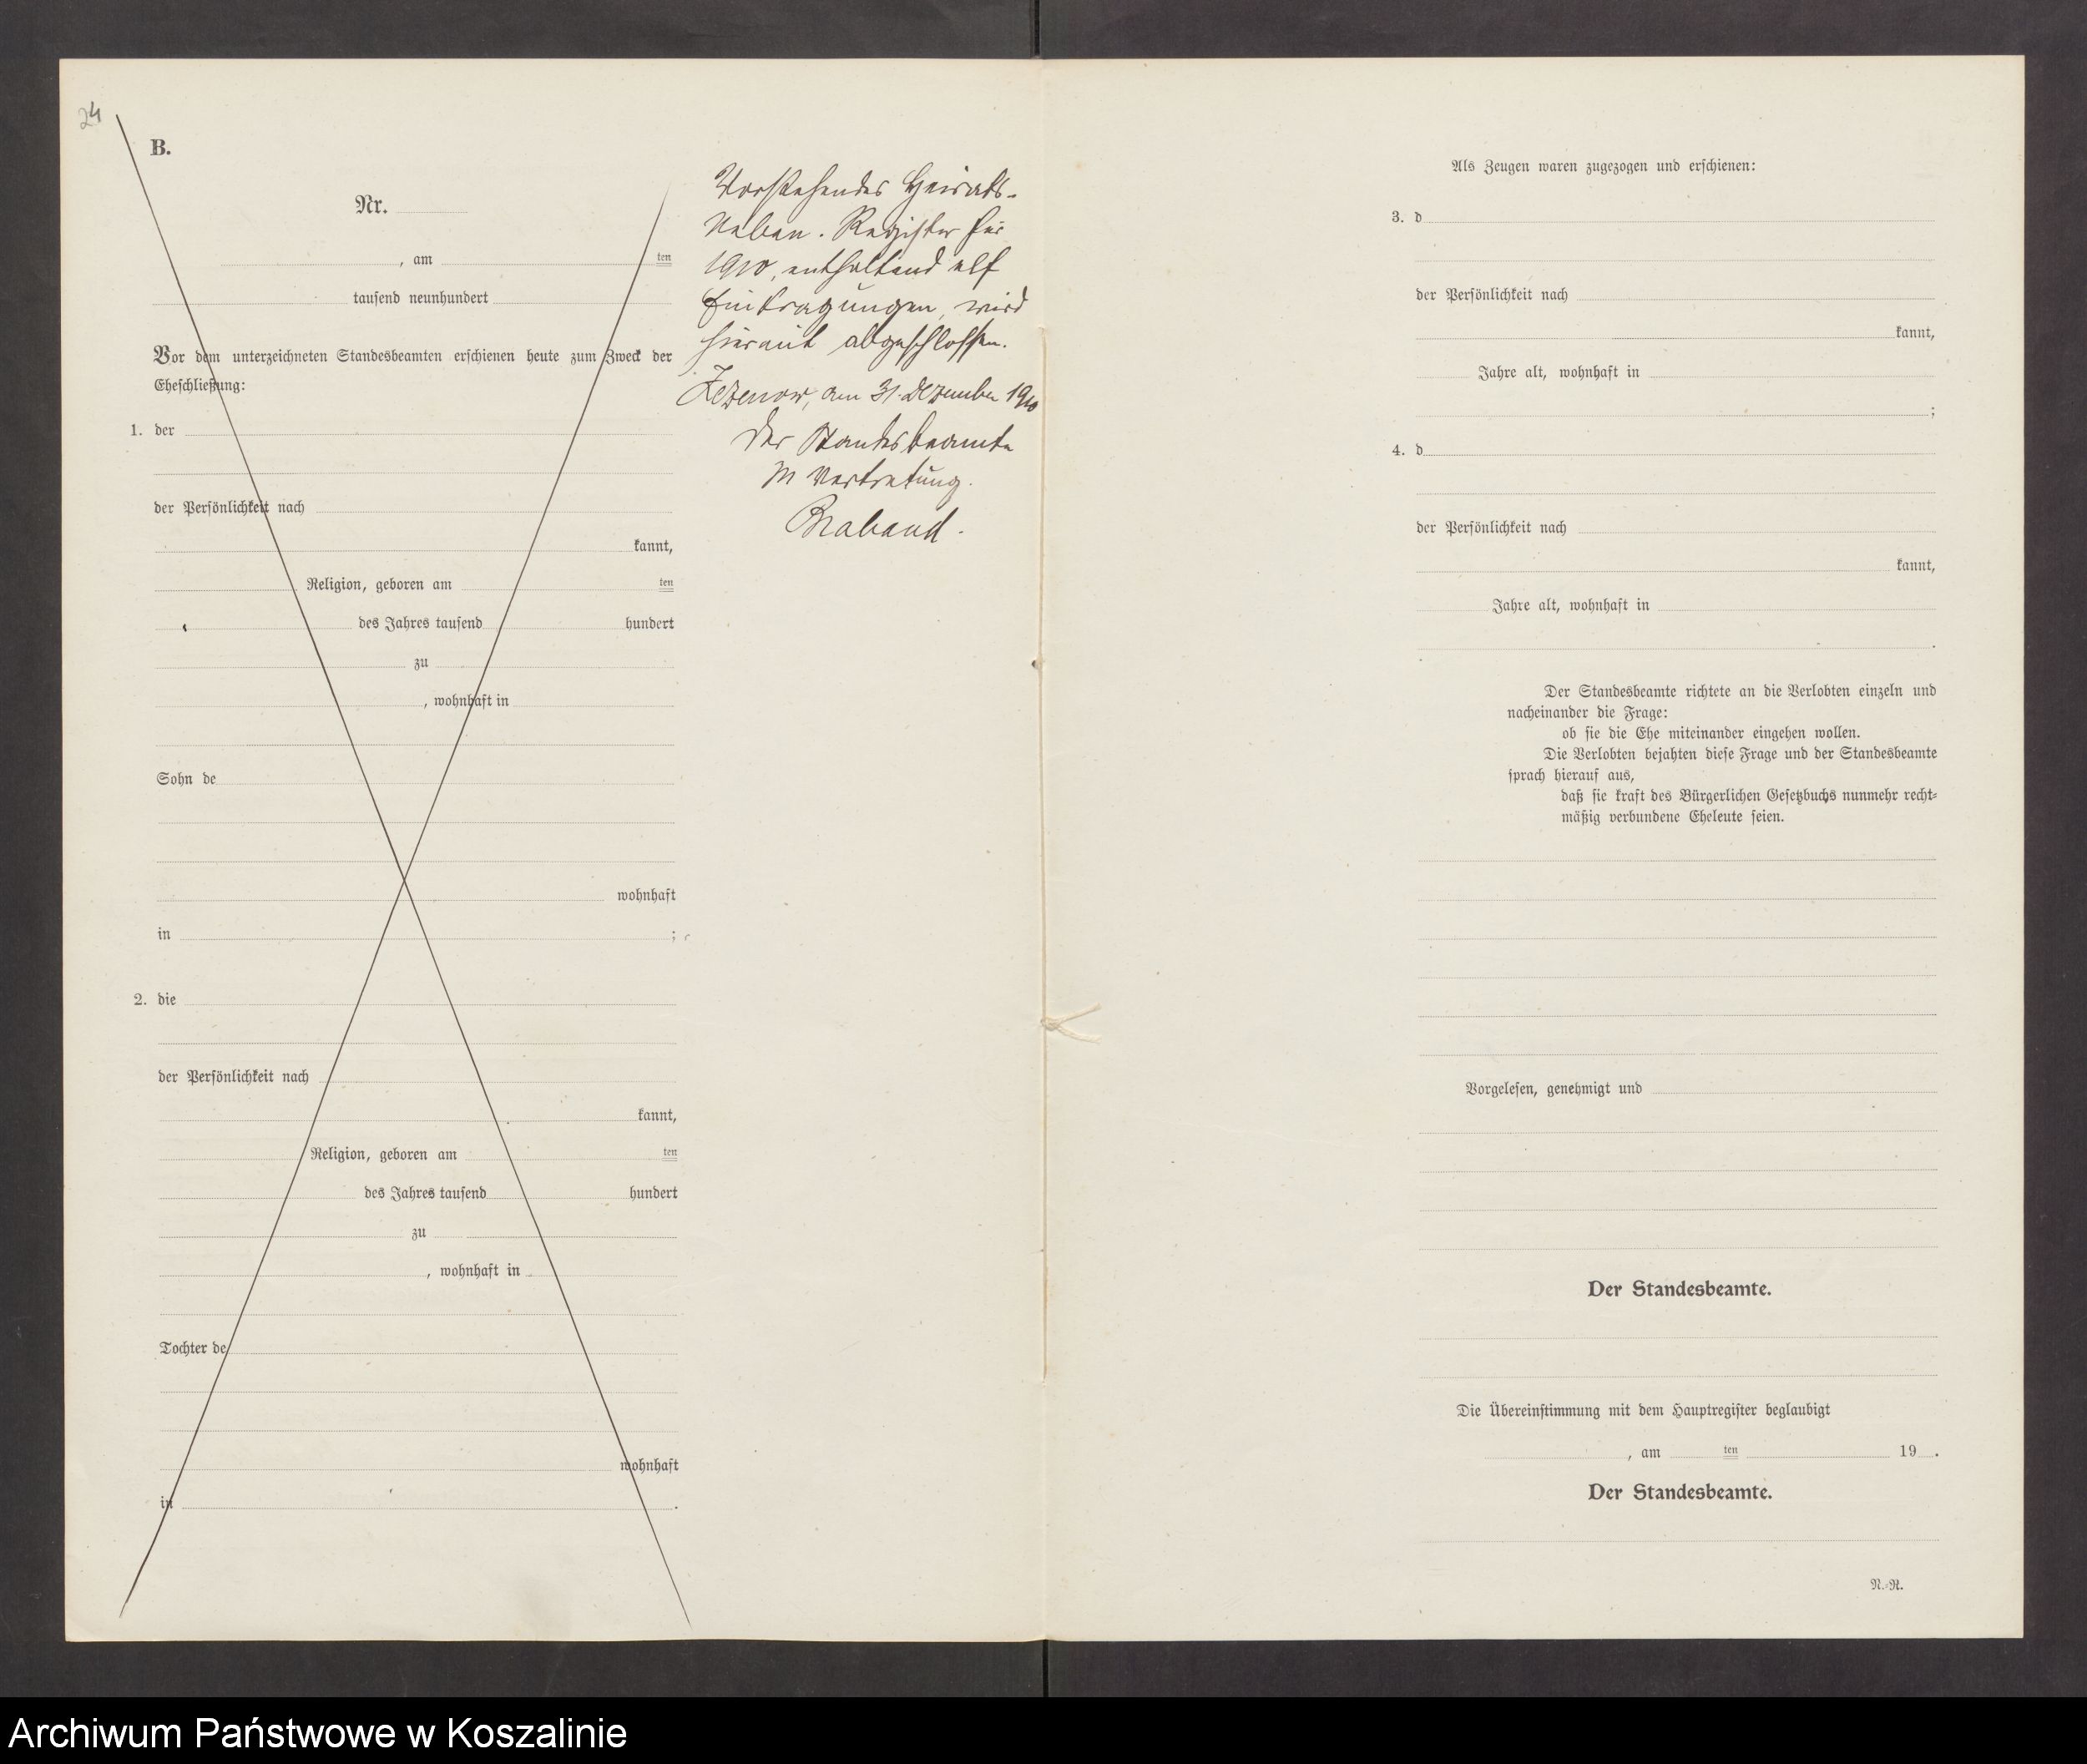 24
B.
Nr.
, am ten
tausend neunhundert
Vor dem unterzeichneten Standesbeamten erschienen heute zum Zweck der
Eheschließung:
1. der
der Persönlichkeit nach
kannt,
Religion, geboren am ten
des Jahres tausend hundert
zu
, wohnhaft in
Sohn de
wohnhaft
in ;
2. die
der Persönlichkeit nach
kannt,
Religion, geboren am ten
des Jahres tausend hundert
zu
, wohnhaft in
Tochter de
wohnhaft
in .
Vorstehendes Heirats-
Neben-Register für
1910, enthaltend elf
Eintragungen, wird
hiermit abgeschlossen.
Zezenow, am 31. Dezember 1910
Der Standesbeamte
In Vertretung.
Braband.
Als Zeugen waren zugezogen und erschienen:
3. d
der Persönlichkeit nach
kannt,
Jahre alt, wohnhaft in
;
4. d
der Persönlichkeit nach
kannt,
Jahre alt, wohnhaft in
.
Der Standesbeamte richtete an die Verlobten einzeln und
nacheinander die Frage:
ob sie die Ehe miteinander eingehen wollen.
Die Verlobten bejahten diese Frage und der Standesbeamte
sprach hierauf aus,
daß sie kraft des Bürgerlichen Gesetzbuchs nunmehr recht-
mäßig verbundene Eheleute seien.
Vorgelesen, genehmigt und
Der Standesbeamte.
Die Übereinstimmung mit dem Hauptregister beglaubigt
, am ten 19 .
Der Standesbeamte.
N.-R.
Archiwum Państwowe w Koszalinie